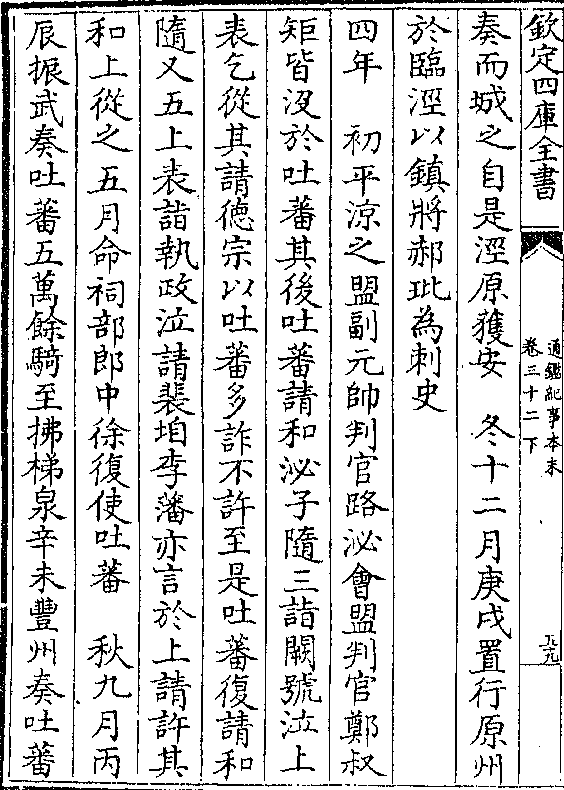 欽定四庫全書
通鑑紀事本末
卷三十二下
五九
奏而城之自是涇原獲安　冬十二月庚戌置行原州
於臨涇以鎮將郝玼為刺史
四年　初平涼之盟副元帥判官路泌會盟判官鄭叔
矩皆沒於吐蕃其後吐蕃請和泌子隨三詣闕號泣上
表乞從其請德宗以吐蕃多詐不許至是吐蕃復請和
隨又五上表詣執政泣請裴垍李藩亦言於上請許其
和上從之　五月命祠部郎中徐復使吐蕃　秋九月丙
辰振武奏吐蕃五萬餘騎至拂梯泉辛未豐州奏吐蕃